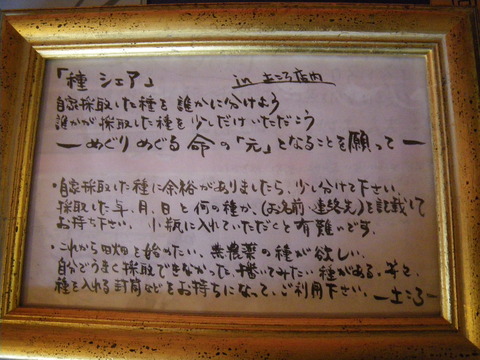 「種 シェア」 in 土ころ店内
自家採取した種を誰かに分けよう
誰かが採取した種を少しだけいただこう
ーめぐりめぐる命の「元」となることを願ってー
・自家採取した種に余裕がありましたら、少し分けて下さい。
採取した年、月、日と何の種か、(お名前・連絡先)を記載して
お持ち下さい。小瓶に入れていただくと有難いです。
・これから田畑を始めたい、無農薬の種が欲しい、
自分でうまく採取できなかった、播いてみたい種がある、等と、
種を入れる封筒などをお持ちになって、ご利用下さい。ー土ころー